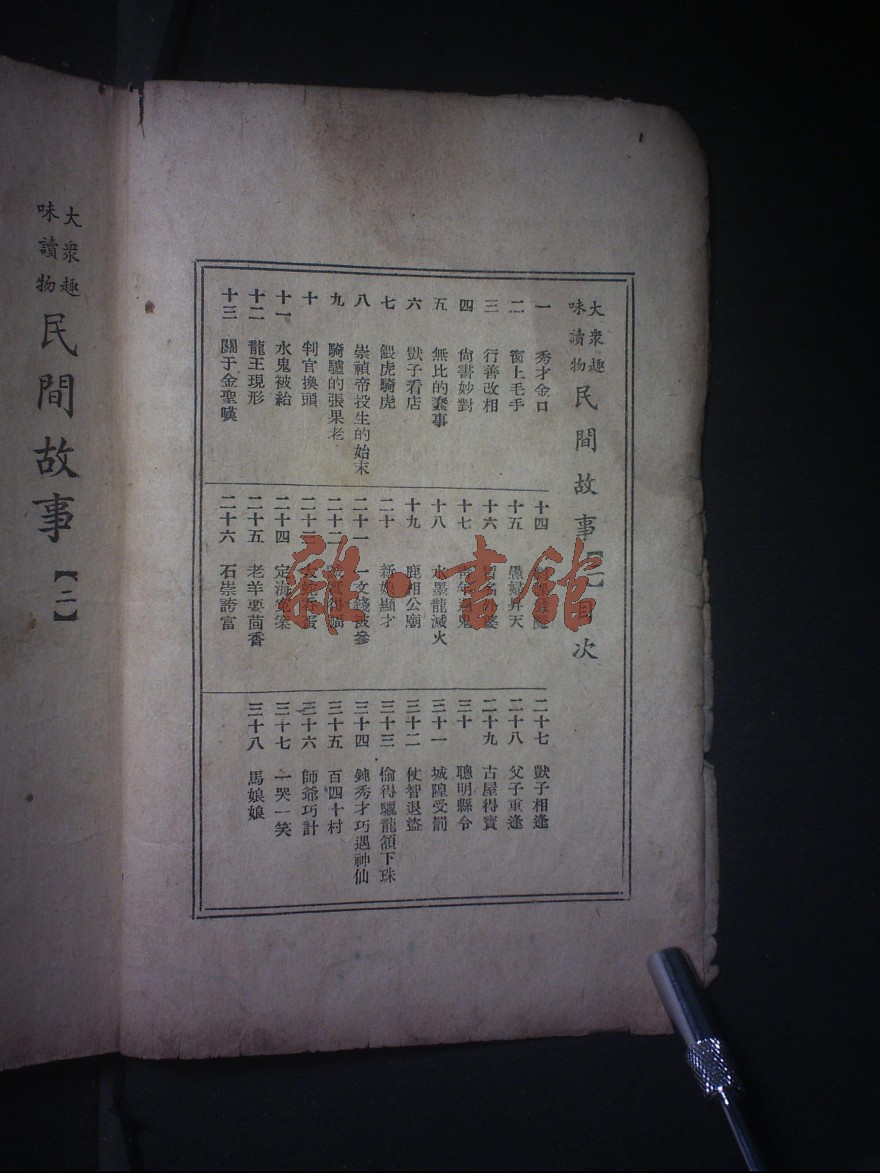 大衆趣味讀物 民間故事【二】目次
一 秀才金口
二 窗上毛手
三 行善改相
四 尙書妙對
五 無比的蠢事
六 獃子看店
七 餵虎騎虎
八 崇禎帝投生的始末
九 騎驢的張果老
十 判官換頭
十一 水鬼被紿
十二 龍王現形
十三 關于金聖暵
十四
十五 愚婦昇天
十六
十七
十八 水墨龍滅火
十九 鹿相公廟
二十 新娘顯才
二十一 一文錢被參
二十二
二十三 蛋
二十四 定海寃案
二十五 老羊要茴香
二十六 石崇誇富
二十七 獃子相逢
二十八 父子重逢
二十九 古屋得寶
三十 聰明縣令
三十一 城隍受罰
三十二 仗智退盜
三十三 偷得驪龍頷下珠
三十四 鈍秀才巧遇神仙
三十五 百四十村
三十六 師爺巧計
三十七 一哭一笑
三十八 馬娘娘
大衆趣味讀物 民間故事【二】
雜·書館